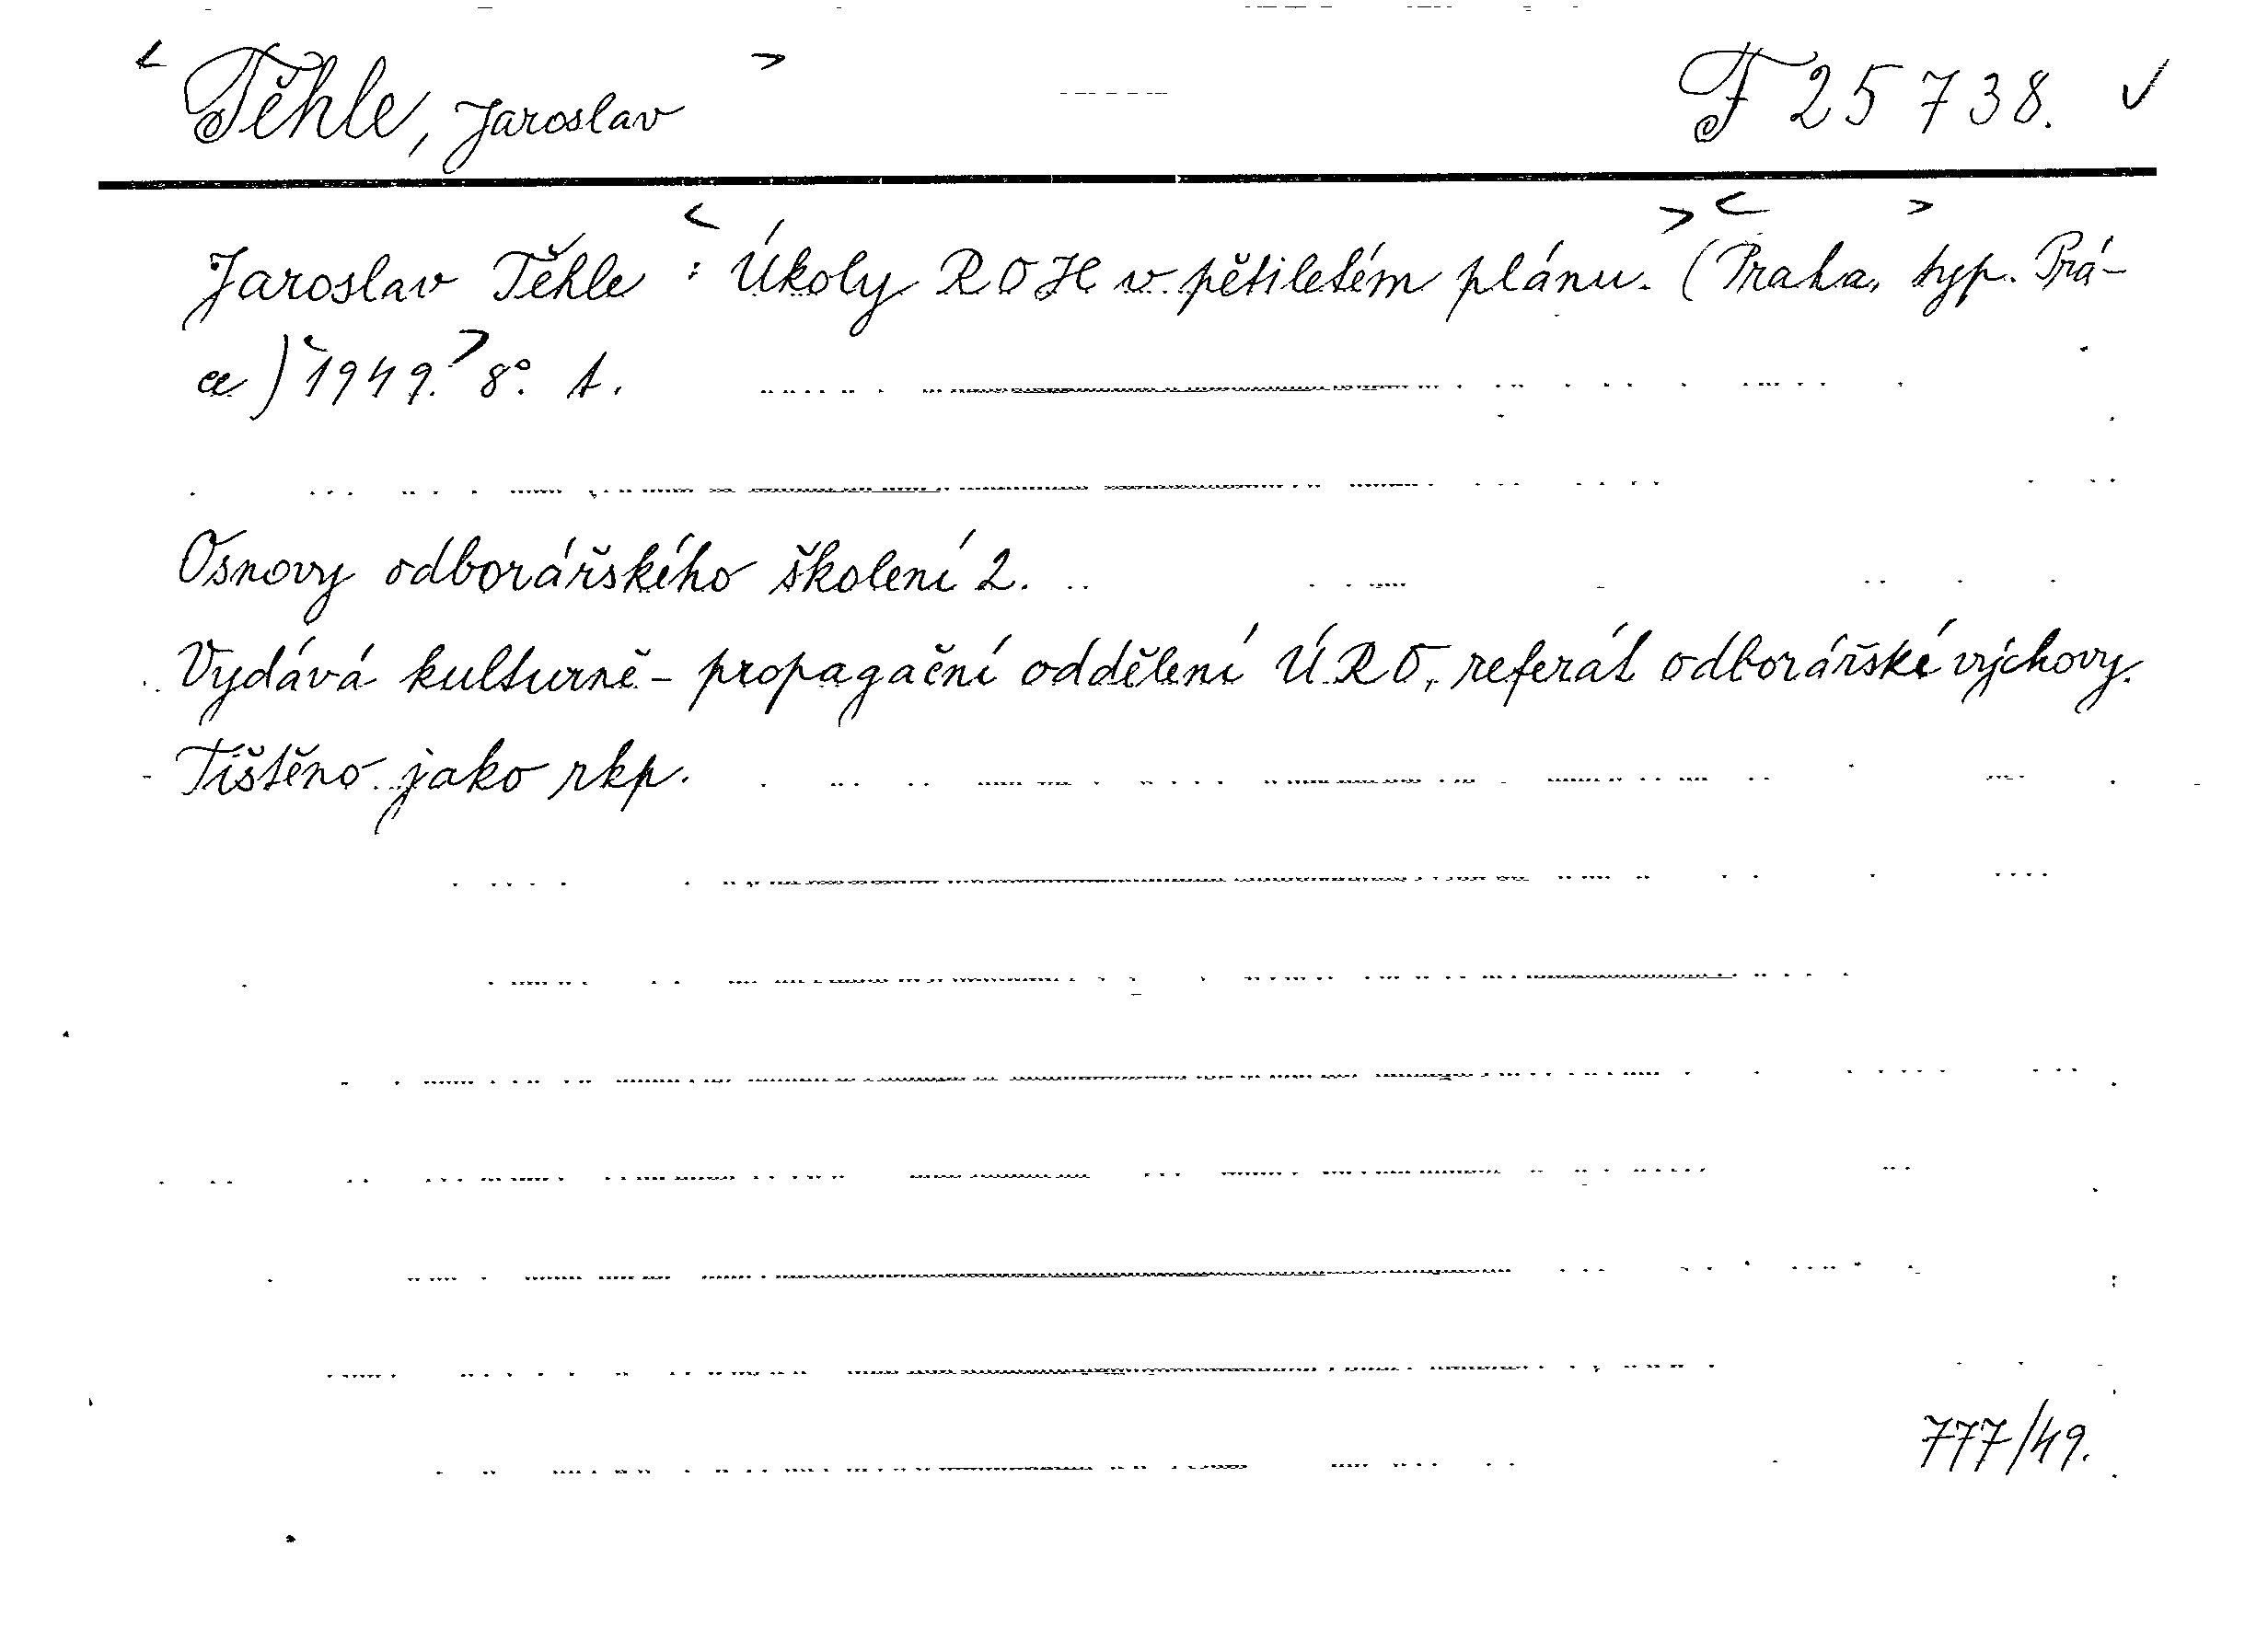 < Těhle, Jaroslav > F 25738. ✓
Jaroslav Těhle : < Úkoly ROH v pětiletém plánu. > (< Praha, > typ. Prá-
ce) < 1949. > 8°. 1.
Osnovy odborářského školení 2.
Vydává kulturně - propagační oddělení ÚRO, referát odborářské výchovy.
Tištěno jako rkp.
777/49.